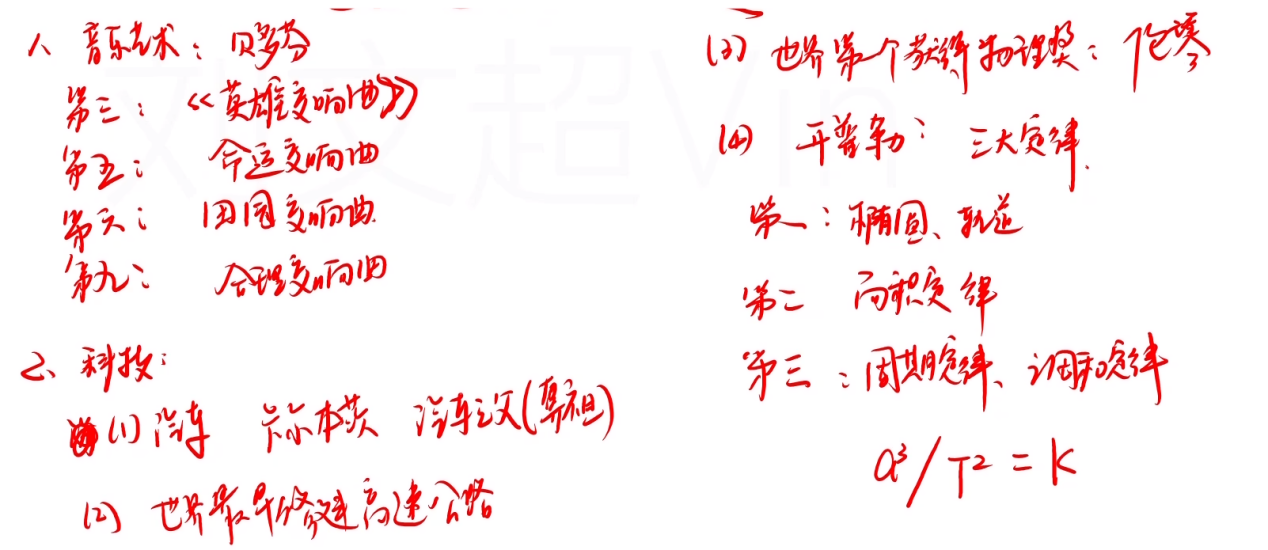 1、音乐艺术：贝多芬
第三：《英雄交响曲》
第五：命运交响曲
第六：田园交响曲
第九：合唱交响曲
2、科技：
(1) 汽车 卡尔本茨 汽车之父(鼻祖)
(2) 世界最早修建高速公路
(3) 世界第一个获得物理奖：伦琴
(4) 开普勒：三大定律.
第一：椭圆、轨道
第二 面积定律
第三：周期定律、调和定律
a³/T² = K